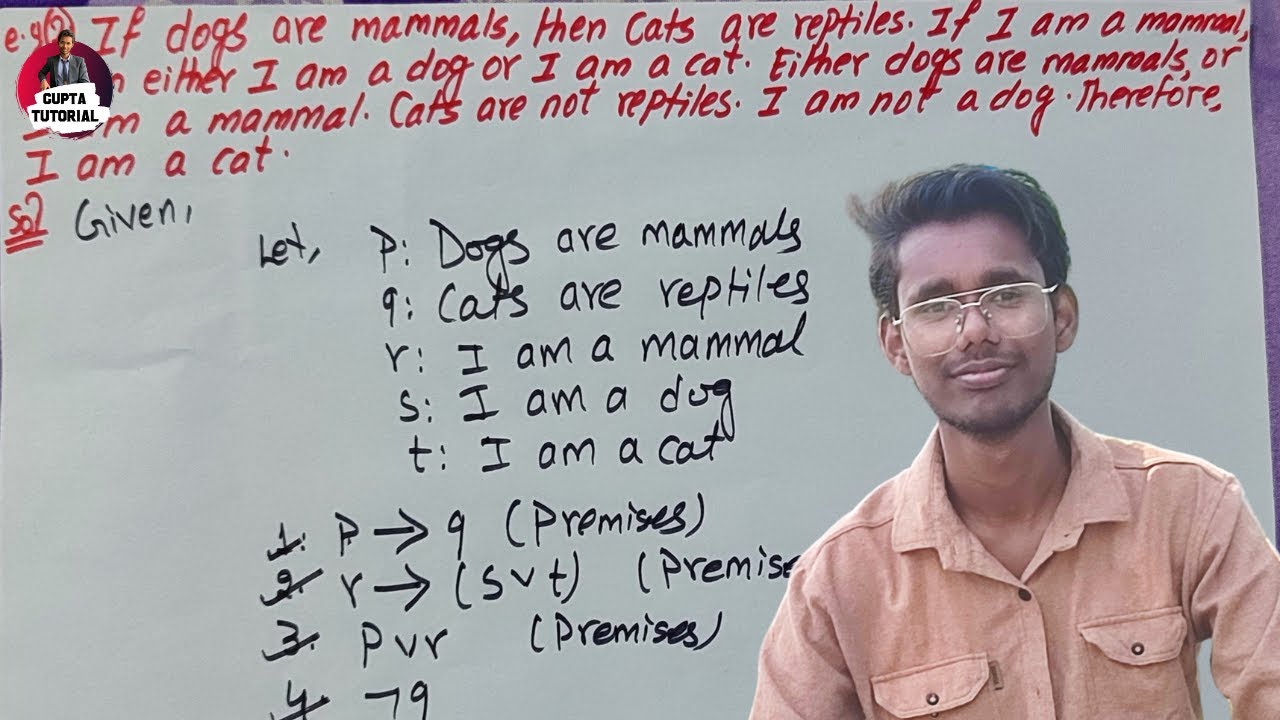 e.g If dogs are mammals, then Cats are reptiles. If I am a mammal,
either I am a dog or I am a cat. Either dogs are mammals, or
a mammal. Cats are not reptiles. I am not a dog. Therefore,
I am a cat.
GUPTA
TUTORIAL
Sol Given,
Let, p: Dogs are mammals
q: Cats are reptiles
r: I am a mammal
s: I am a dog
t: I am a cat
1. P → q (Premises)
2. r → (s v t) (Premise
3. P v r (Premises)
4. ¬q